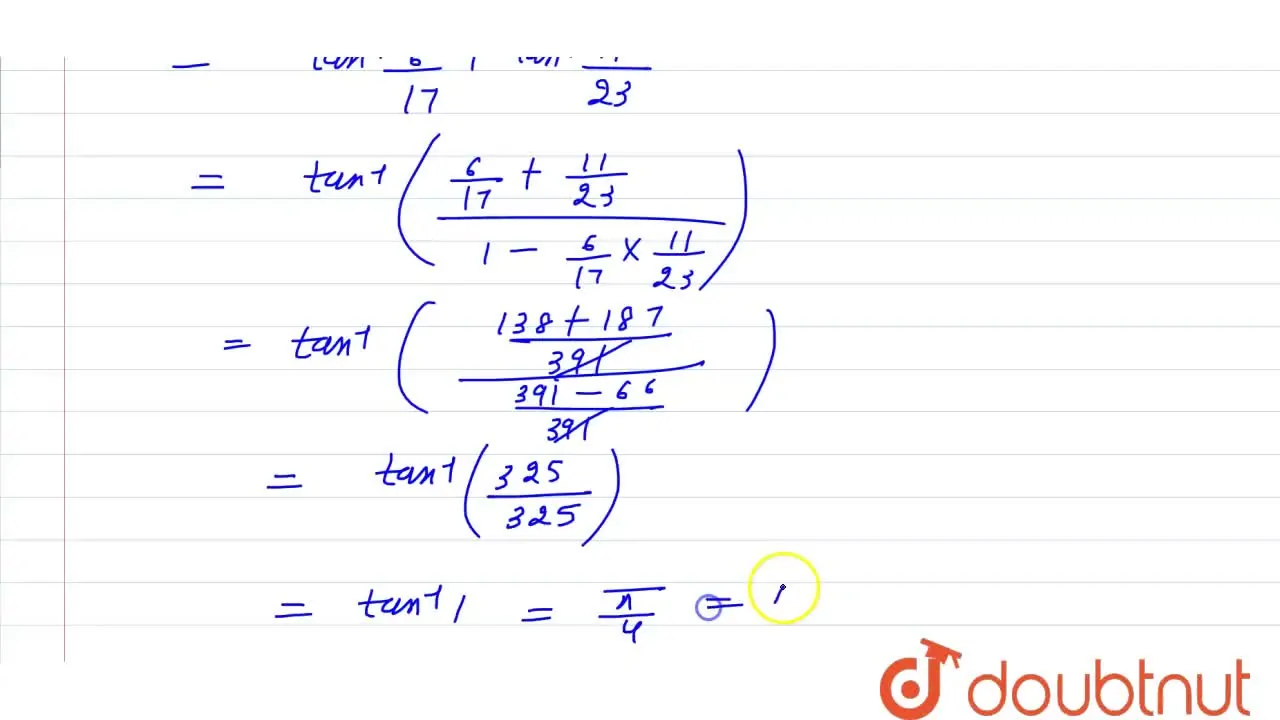 = tan⁻¹ 6/17 + tan⁻¹ 11/23
= tan⁻¹ ( (6/17 + 11/23) / (1 − 6/17 × 11/23) )
= tan⁻¹ ( ((138 + 187)/391) / ((391 − 66)/391) )
= tan⁻¹ (325/325)
= tan⁻¹ 1 = π/4 =
doubtnut